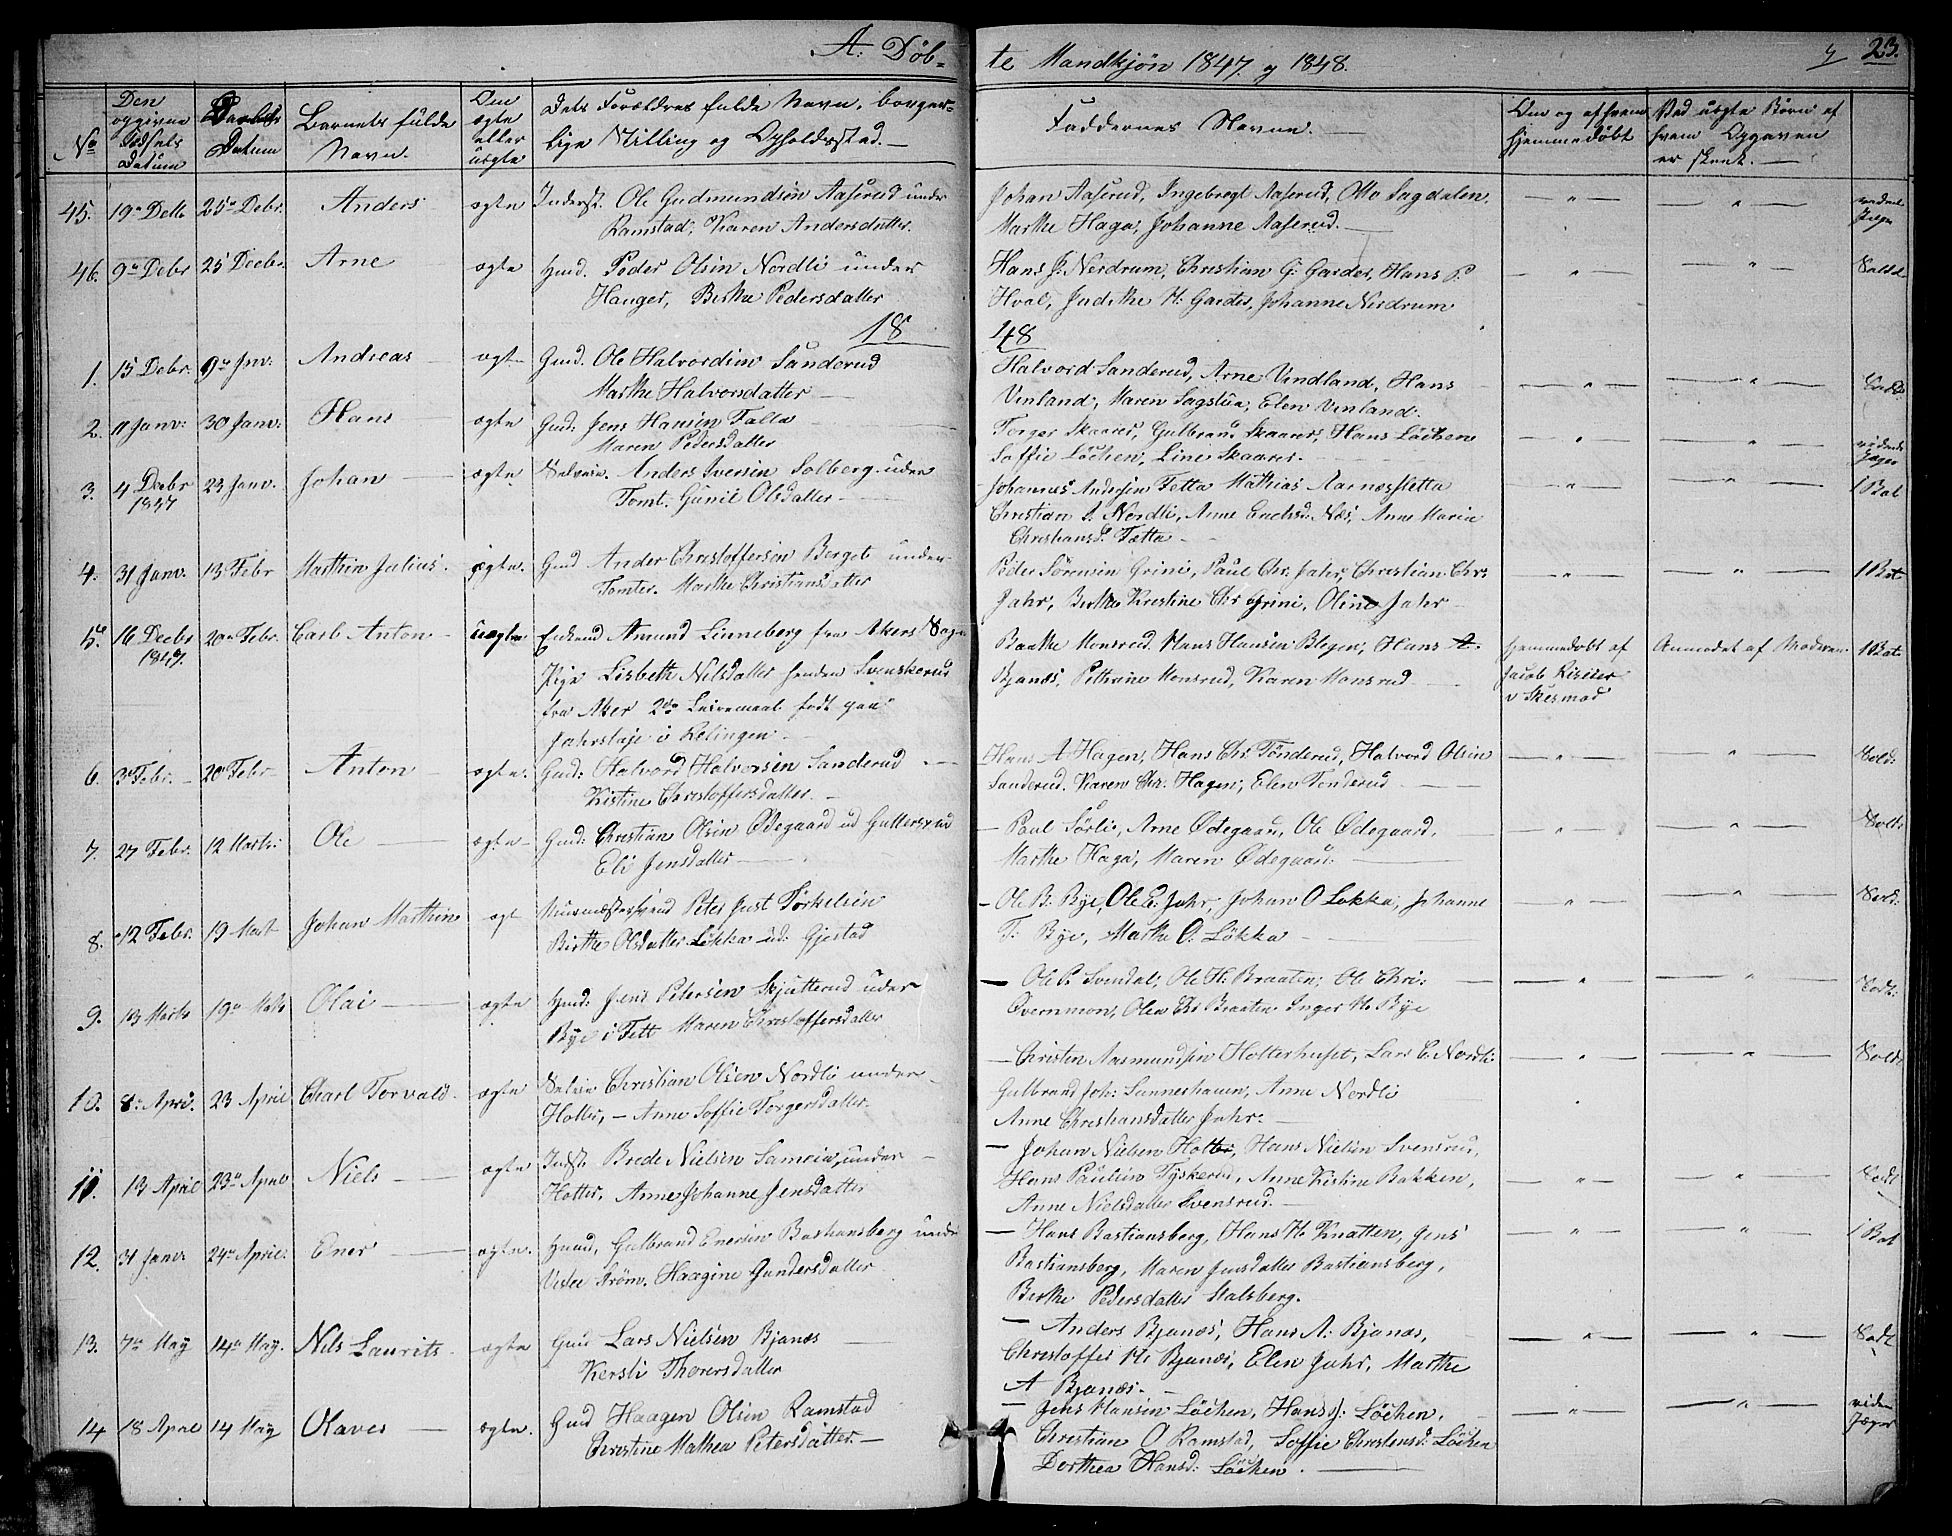 A. Døb-
te Mandkjøn 1847. og 1848.
23.
No
Den opgivne Fødsels Datum
Daabs Datum
Barnets fulde Navn.
Om ægte eller uægte
Dets Forældres fulde Navn, borger-
lige Stilling og Opholdssted.
Faddernes Navne.
Om og af hvem hjemmedøbt
Ved uægte Børn af hvem Opgaven er skeet.
45. 19de Dec. 25de Debr. Anders ægte Inderst. Ole Gudmundsen Aaserud under
Ramstad, Karen Andersdatter.
Johan Aaserud, Ingebregt Aaserud, Otto Sagdalen,
Marthe Haga, Johanne Aaserud.
46. 9de Debr 25 Decbr. Arne ægte Hmd. Peder Olsen Nordli under
Hauger, Berthe Pedersdatter
Hans J. Nerdrum, Christian G. Garder, Hans P.
Hval, Judithe H. Garder, Johanne Nerdrum
18
48
1. 15 Debr. 9de Jnv. Andreas ægte Gmd. Ole Halvorsen Sanderud
Marthe Halvorsdatter
Halvord Sanderud, Arne Vindland, Hans
Vinland, Maren Sagstua, Elen Vinland.
2. 11 Janv: 30 Janv: Hans ægte Gmd: Jens Hansen Falla
Maren Pedersdatter
Torger Skaarer, Gulbrand Skaarer, Hans Löchen
Soffie Löchen, Line Skaarer.
3. 4 Decbr 1847 23 Janv. Johan ægte Selveier. Anders Iversen Solberg under
Tomt. Gunil Olsdatter
Johannes Andersen Tetta Mathias Aarnæssletta
Christian A. Nordli, Anne Enersd. Næs, Anne Marie
Christiansd. Tætta
4. 31 Janv. 13 Febr Marthin Julius. ægte. Gmd Ander Christoffersen Berget under
Tomter. Marthe Christiansdatter
Peder Sörensen Grini, Paul Chr. Jahr, Christian Chr:
Jahr, Berthe Kirstine Chr Grini, Oline Jahr
1 Bat
5. 16 Decbr 1847. 20de Febr. Carl Anton uægte Enkemd Amund Linneberg fra Akers Sogn
Pige Lisbeth Nilsdatter henden Svenskerud
fra Aker 2de Leiermaal født paa
Jahrsløje i Relingen.
Baakke Monsrud, Hans Hansen Blegen, Hans A.
Bjanæs, Pethrine Monsrud, Karen Monsrud
hjemmedöbt af
Jacob Risiter
v Skesmod
Anmodet af Moderen.
1 Bat
6. 3de Febr. 20de Febr Anton ægte. Gmd: Halvord Halvorsen Sanderud
Kistine Christoffersdatter.
Hans A Hagen, Hans Chr. Tönderud, Halvord Olsen
Sanderud. Karen Chr. Hagen, Elen Tonderud
Sold:
7. 27 Febr. 12 Marts: Ole ægte Gmd: Christian Olsen Ødegaard ud Guttersrud
Eli Jensdatter
Paul Sörlie, Arne Ødegaard, Ole Ødegaard,
Marthe Haga, Maren Ødegaard.
8. 12 Febr. 19 Mart Johan Marthin ægt Peter Just Torkelsen
Birthe Olsdatter Løkka ud: Gjestad
Ole B. Bye, Ole E. Jahr, Johan O Løkka, Johanne
T. Bye, Marthe O. Løkka
9. 13 Marts 19de Marts Olai ægte Hmd: Jens Petersen Skjatterud under
Bye i Fett Maren Christoffersdatter
Ole P. Svendal, Ole H. Braaten, Ole Chri:
Övernmon, Olea Chr Braaten Inger H. Bye
10. 8de April. 23 April Charl Torvald. ægte Selveier Christian Olsen Nordli under
Holter, Anne Soffie Torgersdatter
Christen Aasmundsen Holterhuset, Lars C. Nordli
Gulbrand Joh: Sunneshauen, Anne Nordli
Anne Christiansdatter Jahr.
11. 13 April 23de April Niels ægte Indst: Brede Nielsen Sameia, under
Holter. Anne Johanne Jensdatter
Johan Nielsen Holter, Hans Nielsen Svensrud,
Hans Paulsen Tyskerud, Anne Kistine Bakken,
Anne Nielsdatter Svensrud.
12. 31 Janv 24de April. Ener ægte. Hmd, Gulbrand Enersen Bastiansberg under
Vestre Tröm. Haagine Gundersdatter
Hans Bastiansberg, Hans H. Knatten, Jens
Bastiansberg, Maren Jensdatter Bastiansberg,
Berthe Pedersdatter Stalsberg.
1 Bat
13. 7de May 14de May. Nils Laurits ægte Gmd Lars Nielsen Bjanæs
Kersti Thorersdatter
Anders Bjanæs, Hans A. Bjanæs,
Christoffer H. Bjanæs, Elen Jahr, Marthe
A Bjanæs.
14 18 April 14 May Olaves ægte. Gmd Haagen Olsen Ramstad
Christine Mathea Petersdatter
Jens Hansen Löchen, Hans J. Löchen,
Christian O Ramstad, Soffie Christensd. Löchen
Dorthea Hansd: Löchen.